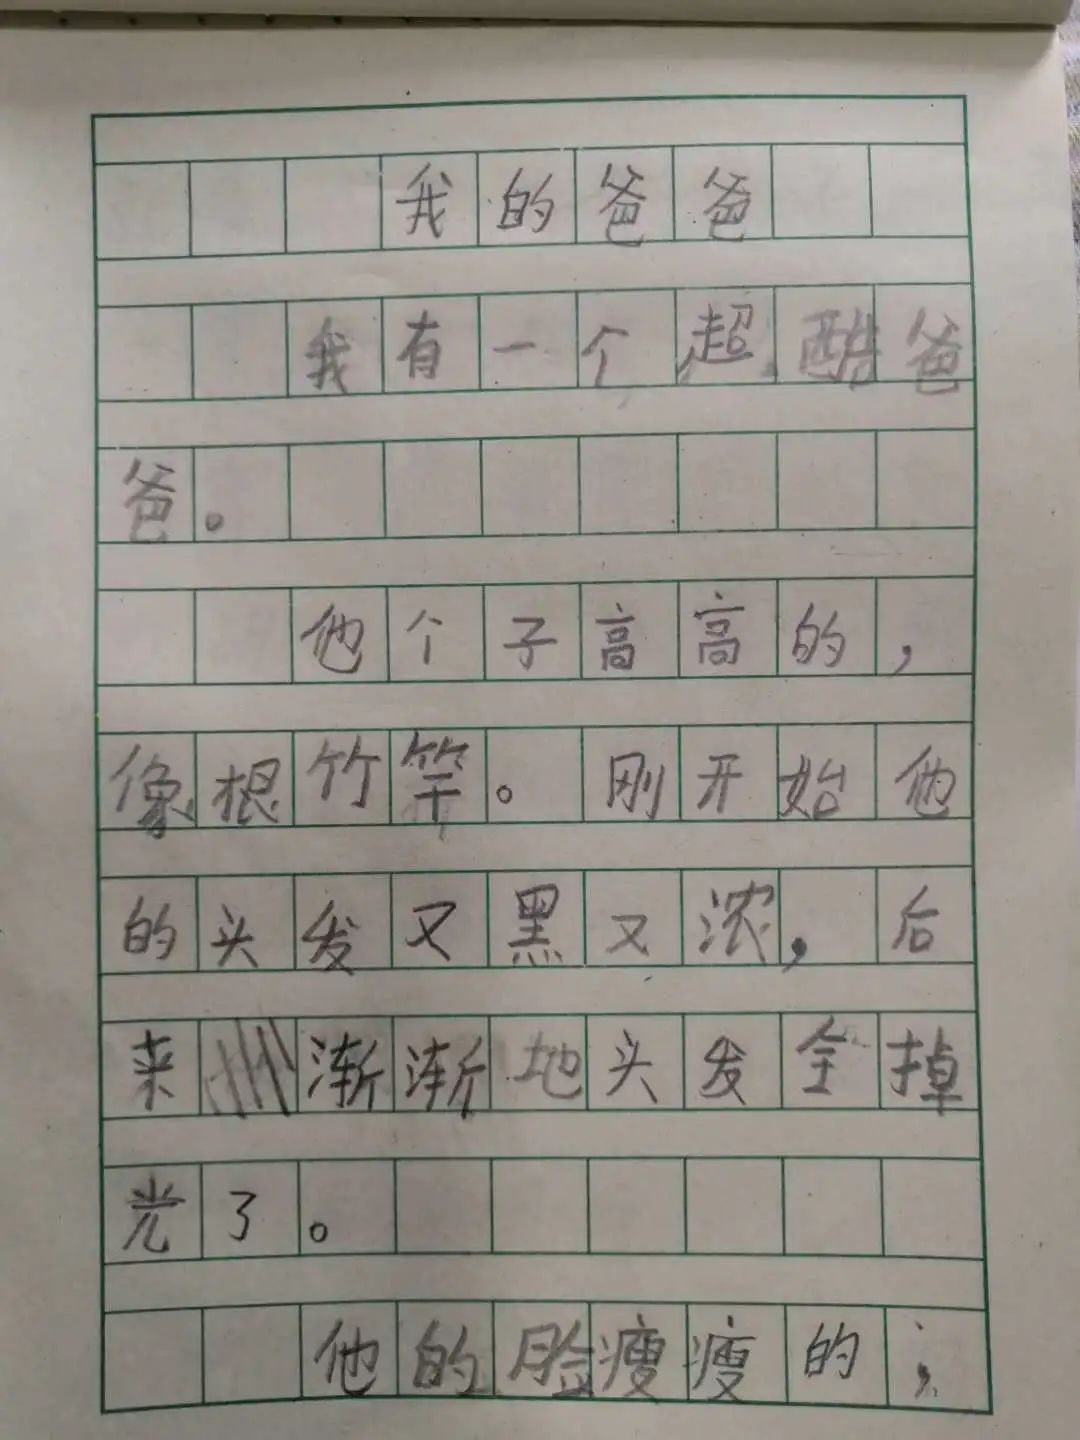 我的爸爸
我有一个超酷爸
爸。
他个子高高的，
像根竹竿。刚开始他
的头发又黑又浓，后
来渐渐地头发全掉
光了。
他的脸瘦瘦的；